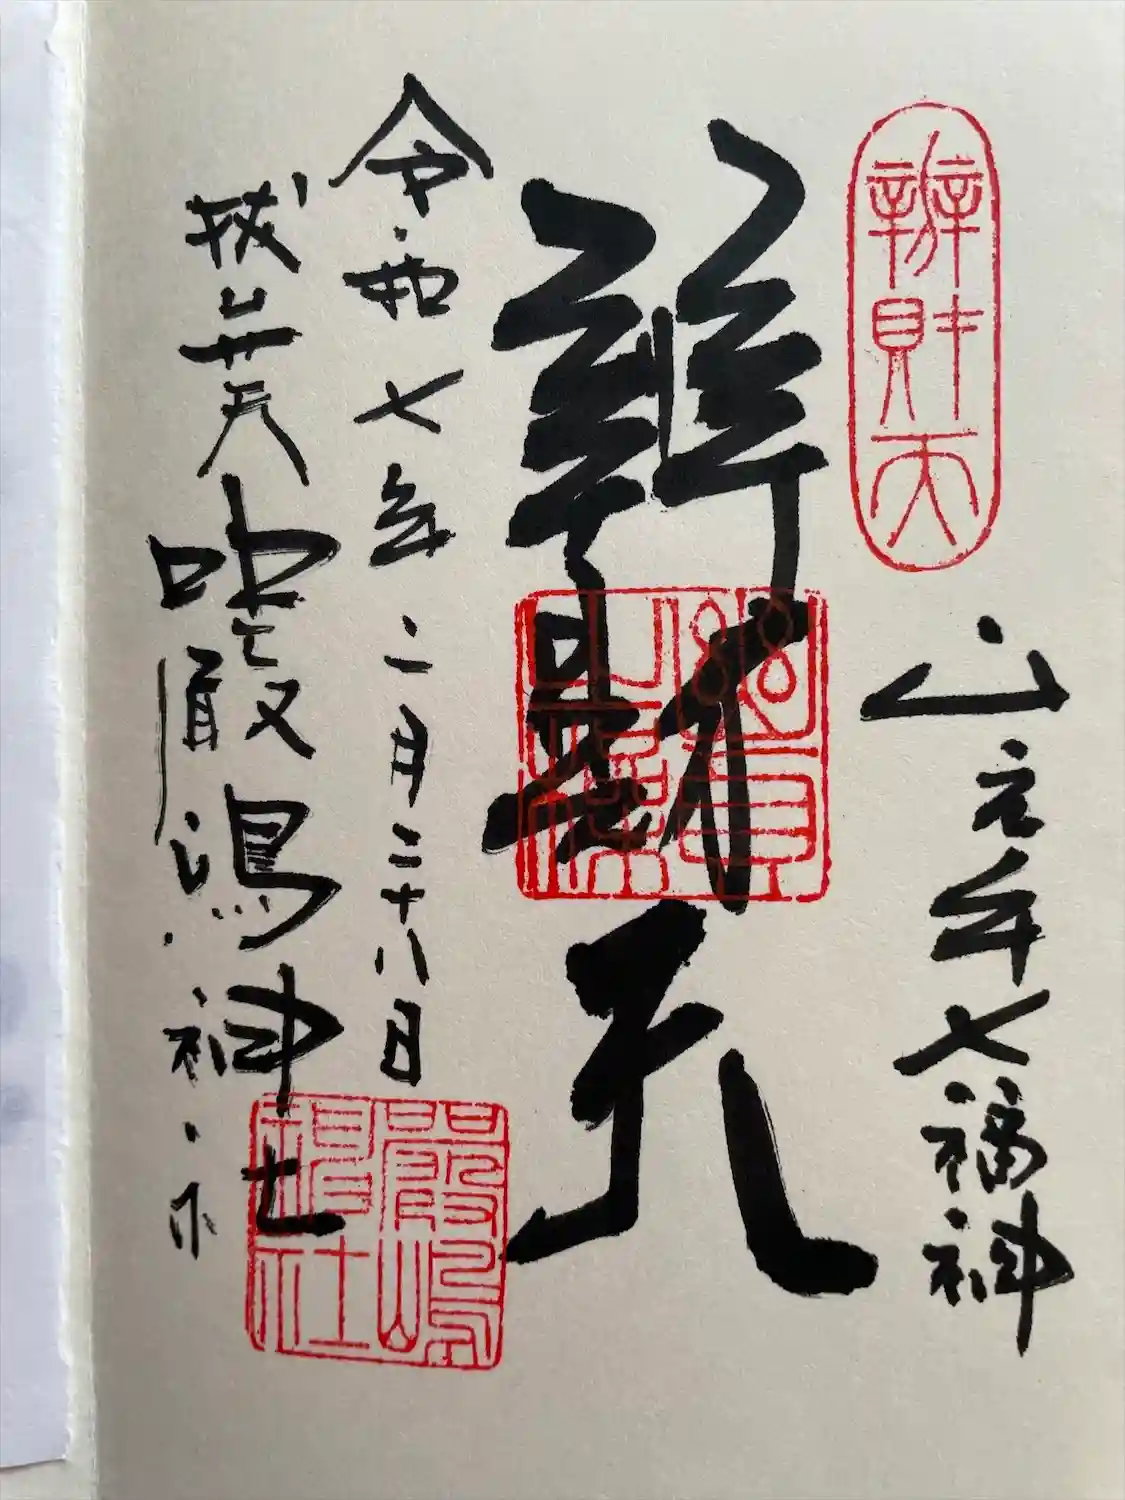 辨財天
山之手七福神
辨財天
令和七年二月二十八日
抜弁天 嚴嶋神社
嚴嶋神社